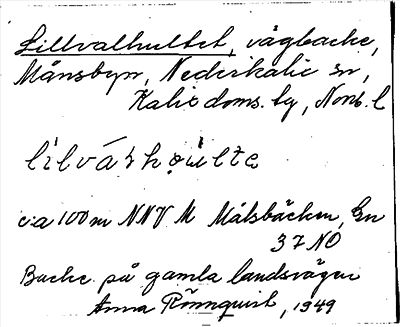 Lillvalhultet, vägbacke,
Månsbyn, Nederkalix sn,
Kalix doms. lg, Norrb. l
ca 100 m NNV M Målsbäcken, Gn
37 NO
Backe på gamla landsvägen
Anna Rönnqvist, 1949